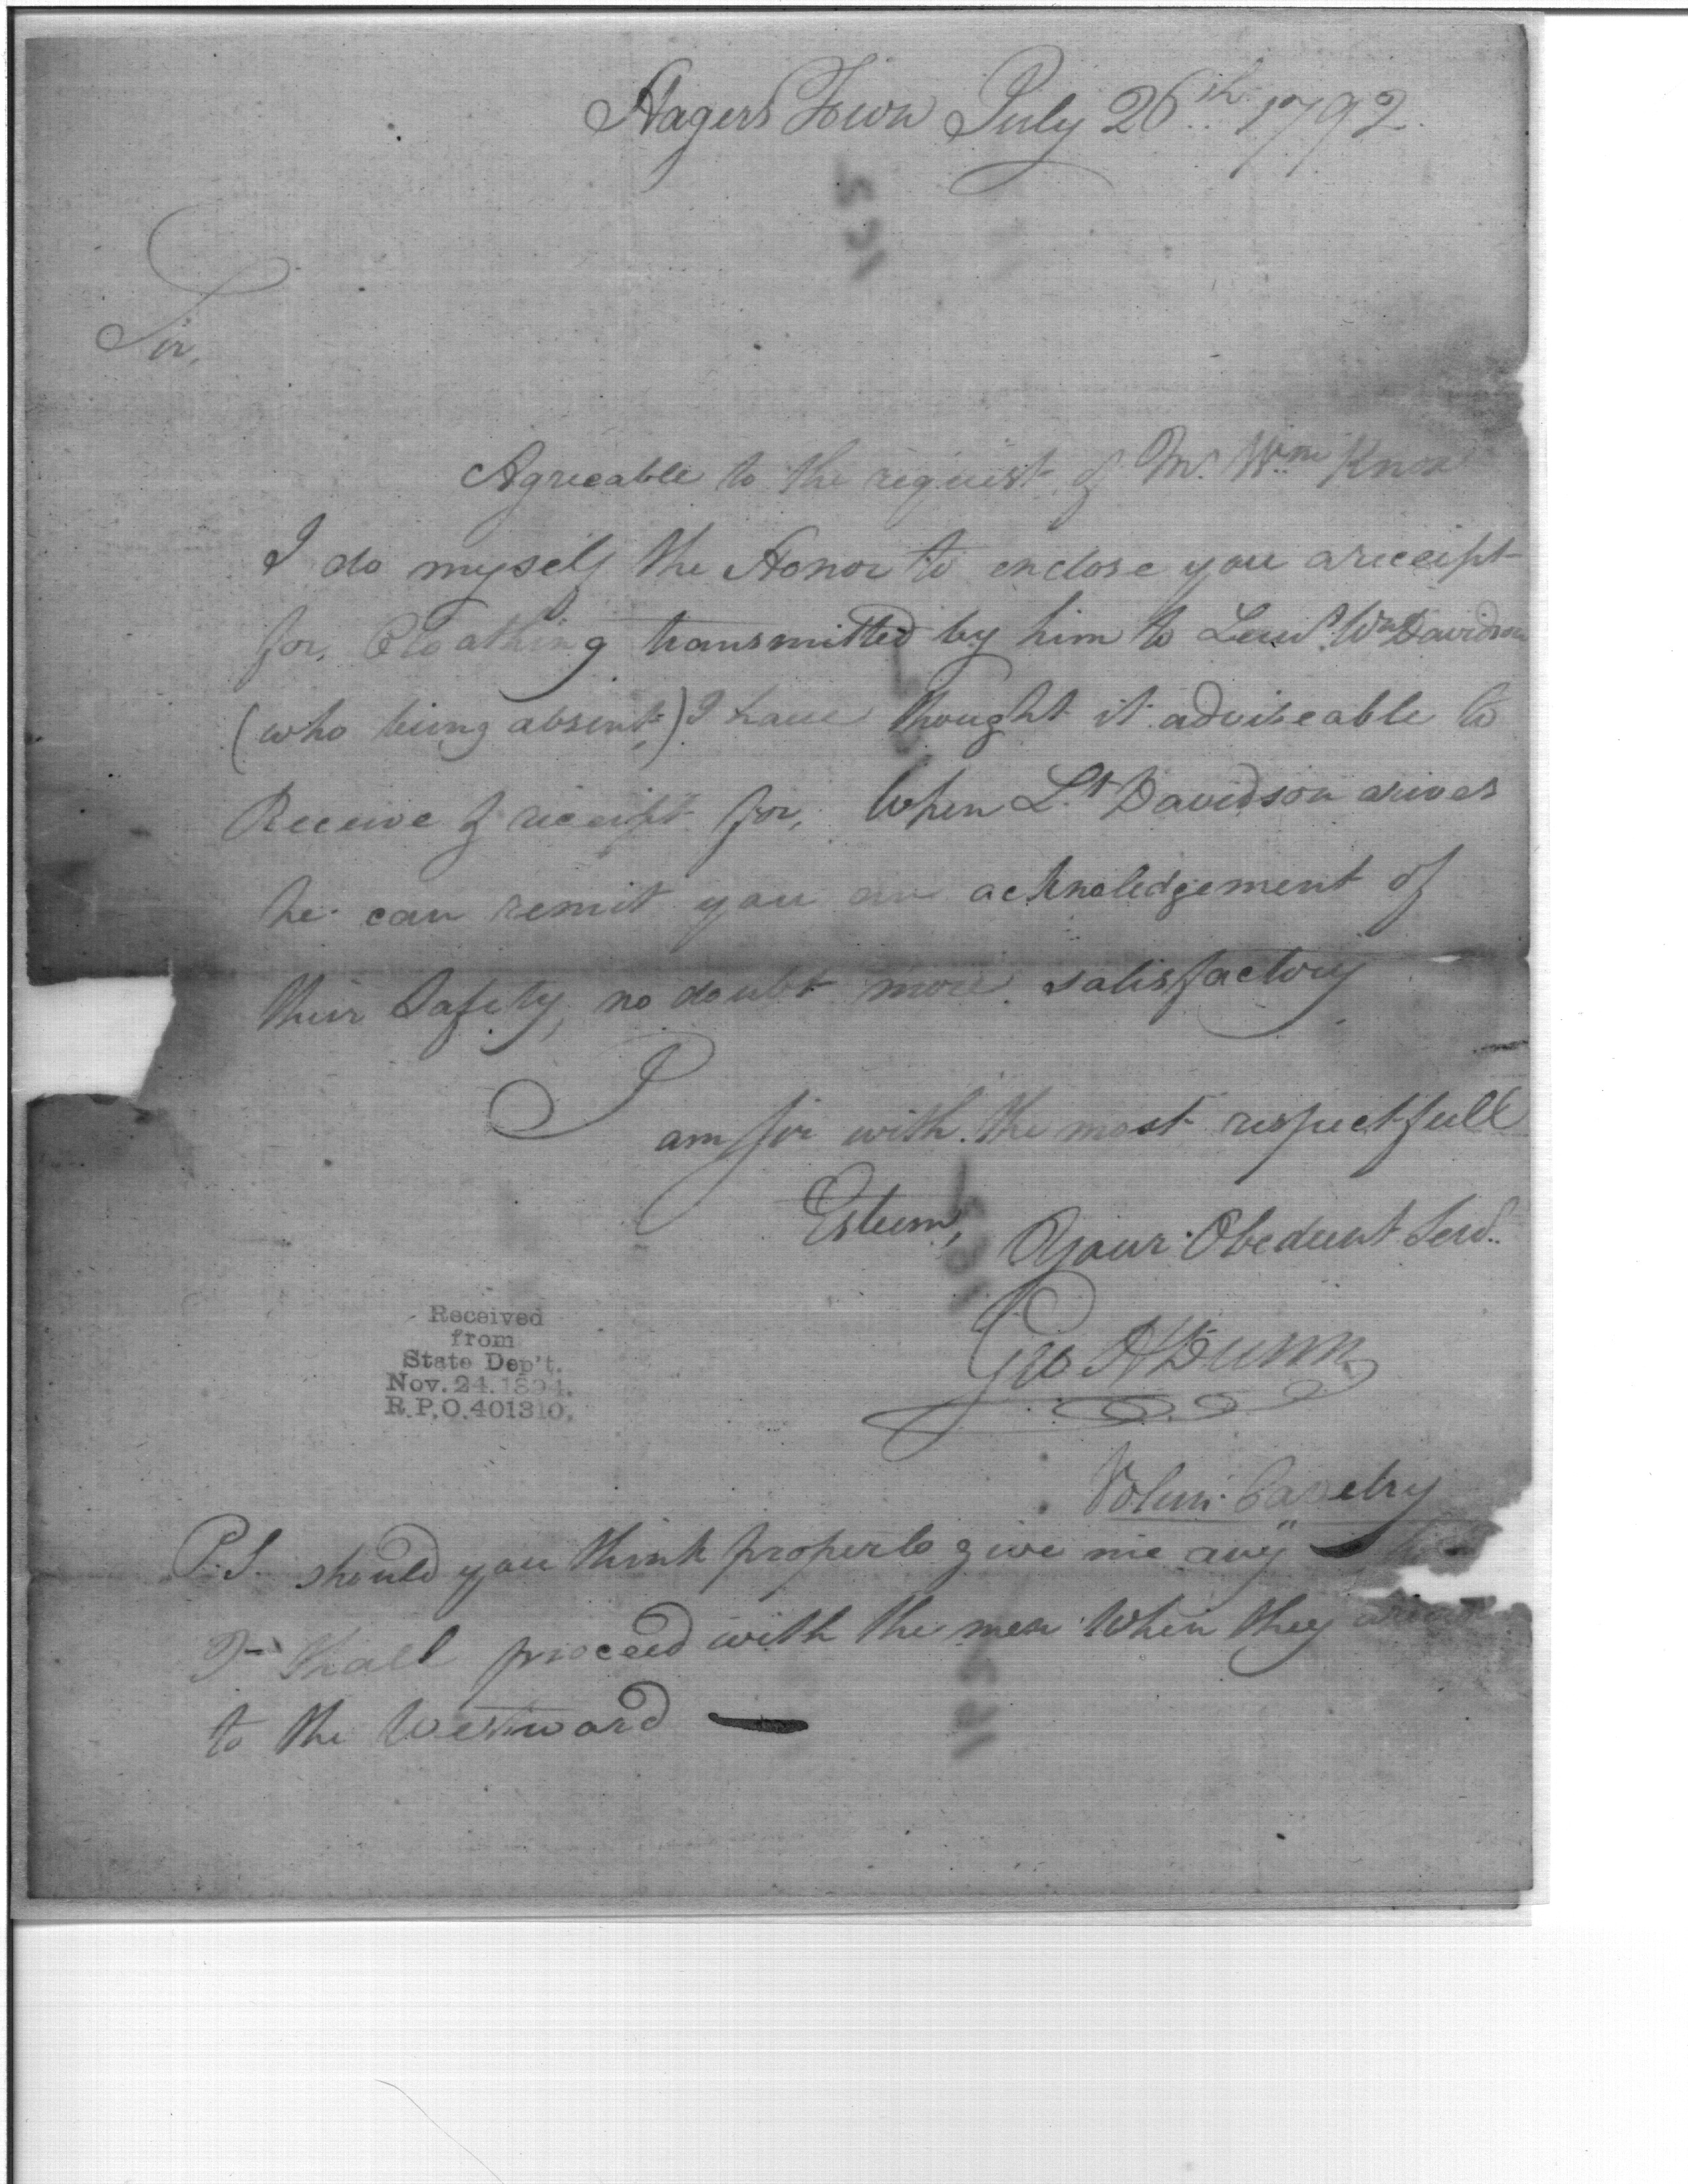 Hagers Town July 26th 1792.
Sir,
Agreeable to the request of Mr. Wm Knox
I do myself the Honor to enclose you a receipt
for, Cloathing transmitted by him to Leut. Wm Davidson
(who being absent,) I have thought it adviseable to
Receive & receipt for, When Lt Davidson arives
he can remit you an acknoledgement of
their Safety, no doubt more satisfactory
I
am Sir with the most respectfull
Esteem, Your Obedient Servt.
Geo H Dunn
Volun. Cavelry
P.S. should you think proper to give me any
I shall proceed with the men when they arive
to the Westward
Received
from
State Dep't.
Nov. 24. 1894.
R.P.O. 401310.